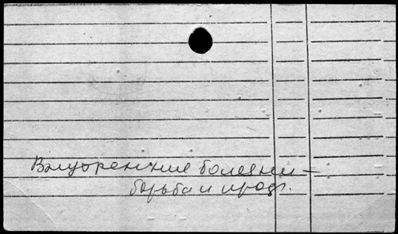 Внутренние болезни –
борьба и проф.